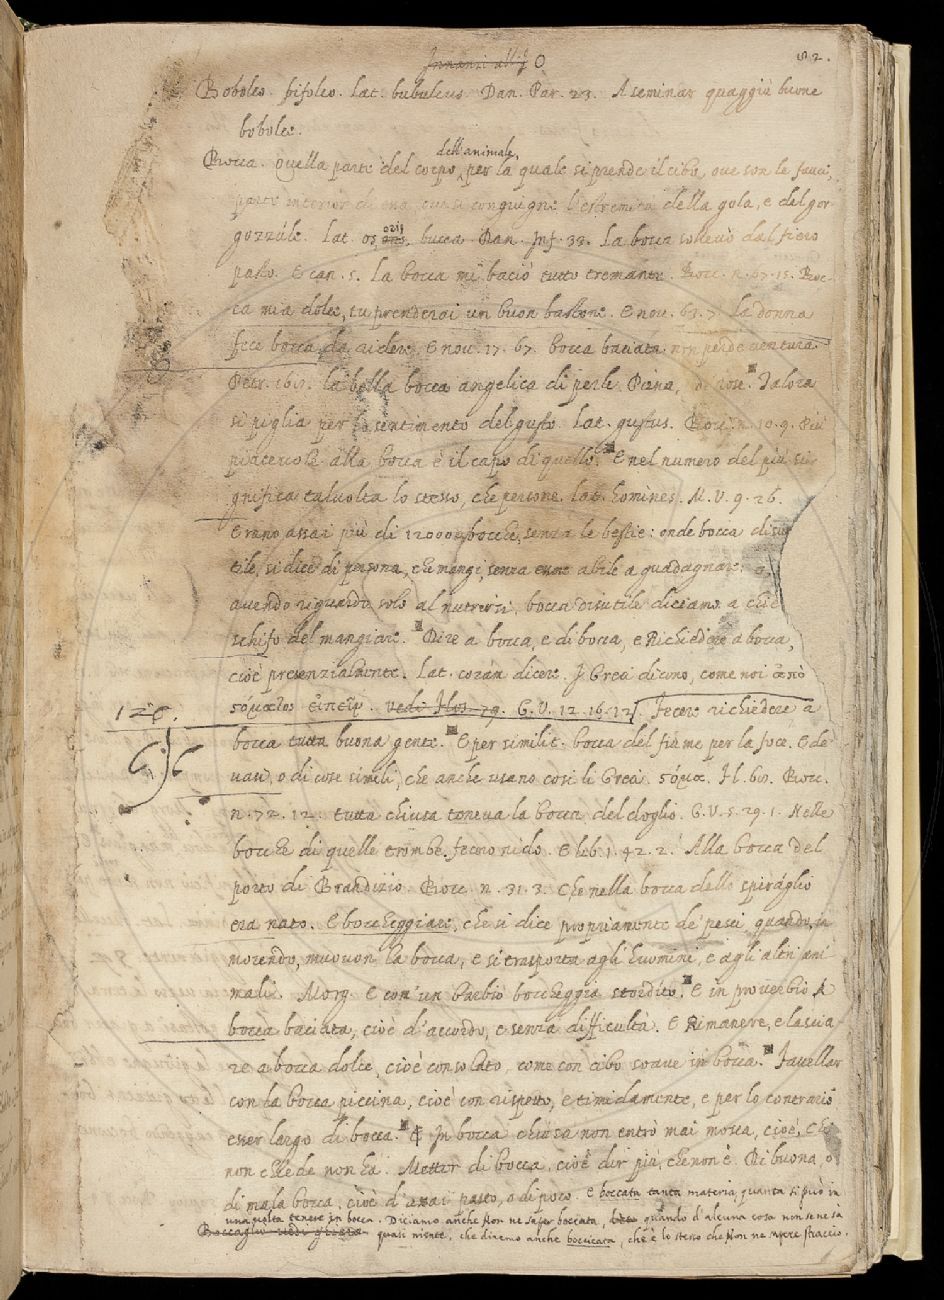 Innanzi all'J O 92.
Bobolco. bifolco. Lat. bubulcus. Dan. Par. 23. A seminar quaggiù buone
bobolce.
dell'animale,
Bocca. Quella parte del corpo, per la quale si prende il cibo, ove son le fauci,
parte interior di essa, ove si congiugne l'estremità della gola, e del gor-
oris
gozzúle. Lat. os, bucca. Dan. Inf. 33. La bocca sollevò dal fiero
pasto. E can. 5. La bocca mi baciò tutto tremante. Bocc. n. 67. 15. Boc-
ca mia dolce, tu prenderai un buon bastone. E nov. 63. 7. La donna
fece bocca da ridere. E nov. 17. 67. bocca baciata non perde ventura.
Petr. 161. la bella bocca angelica di perle Piena, di rose. Talora
si piglia per lo sentimento del gusto. Lat. gustus. Bocc. n. 10. 9. Più
piacevole alla bocca è il capo di quello. E nel numero del più si-
gnifica talvolta lo stesso, che persone. Lat. homines. M. V. 9. 26.
Erano assai più di 12000 bocche, senza le bestie: onde bocca disu-
tile, si dice di persona, che mangi, senza esser abile a guadagnare:
avendo riguardo solo al nutrirsi, bocca disutile diciamo a chi è
schifo del mangiare. Dire a bocca, e di bocca, e Richiedere a bocca,
cioè presenzialmente. Lat. coràm dicere. I Greci dicono, come noi ἀπὸ
στόματος εἰπεῖν. vedi Flos. 79. G. V. 12. 16. 12. Fecero richiedere a
126.
bocca tutta buona gente. E per similit. bocca del fiume per la foce. E de'
vasi, o di cose simili, che anche usano così li Greci στόμα. Fl. 60. Bocc.
n. 72. 12. tutta chiusa toneva la bocca del doglio. G. V. 5. 29. 1. Nelle
bocche di quelle trombe fecero nido. E lib. 1. 42. 2. Alla bocca del
porto di Brandizio. Bocc. n. 31. 3. Che nella bocca dello spiraglio
era nato. E boccheggiare, che si dice propriamente de' pesci, quando, in
morendo, muovon la bocca, e si trasporta agli huomini, e agli altri ani
mali. Morg. E com'un barbio boccheggia stordito. E in proverbio A
bocca baciata, cioè d'accordo, e senza difficultà. E Rimanere, e lascia-
re a bocca dolce, cioè consolato, come con cibo soave in bocca. Favellar
con la bocca piccina, cioè con rispetto, e timidamente, e per lo contrario
esser largo di bocca. In bocca chiusa non entrò mai mosca, cioè, Chi
non chiede non ha. Metter di bocca, cioè dir più, che non è. Di buona, o
di mala bocca, cioè d'assai pasto, o di poco. E boccata tanta materia, quanta si può in
una volta tenere in bocca. Diciamo anche Non ne saper boccata, quando d'alcuna cosa non se ne sa
Boccaglio vedi quasi niente, che diremo anche boccicata, che è lo stesso che Non ne sapere straccio.